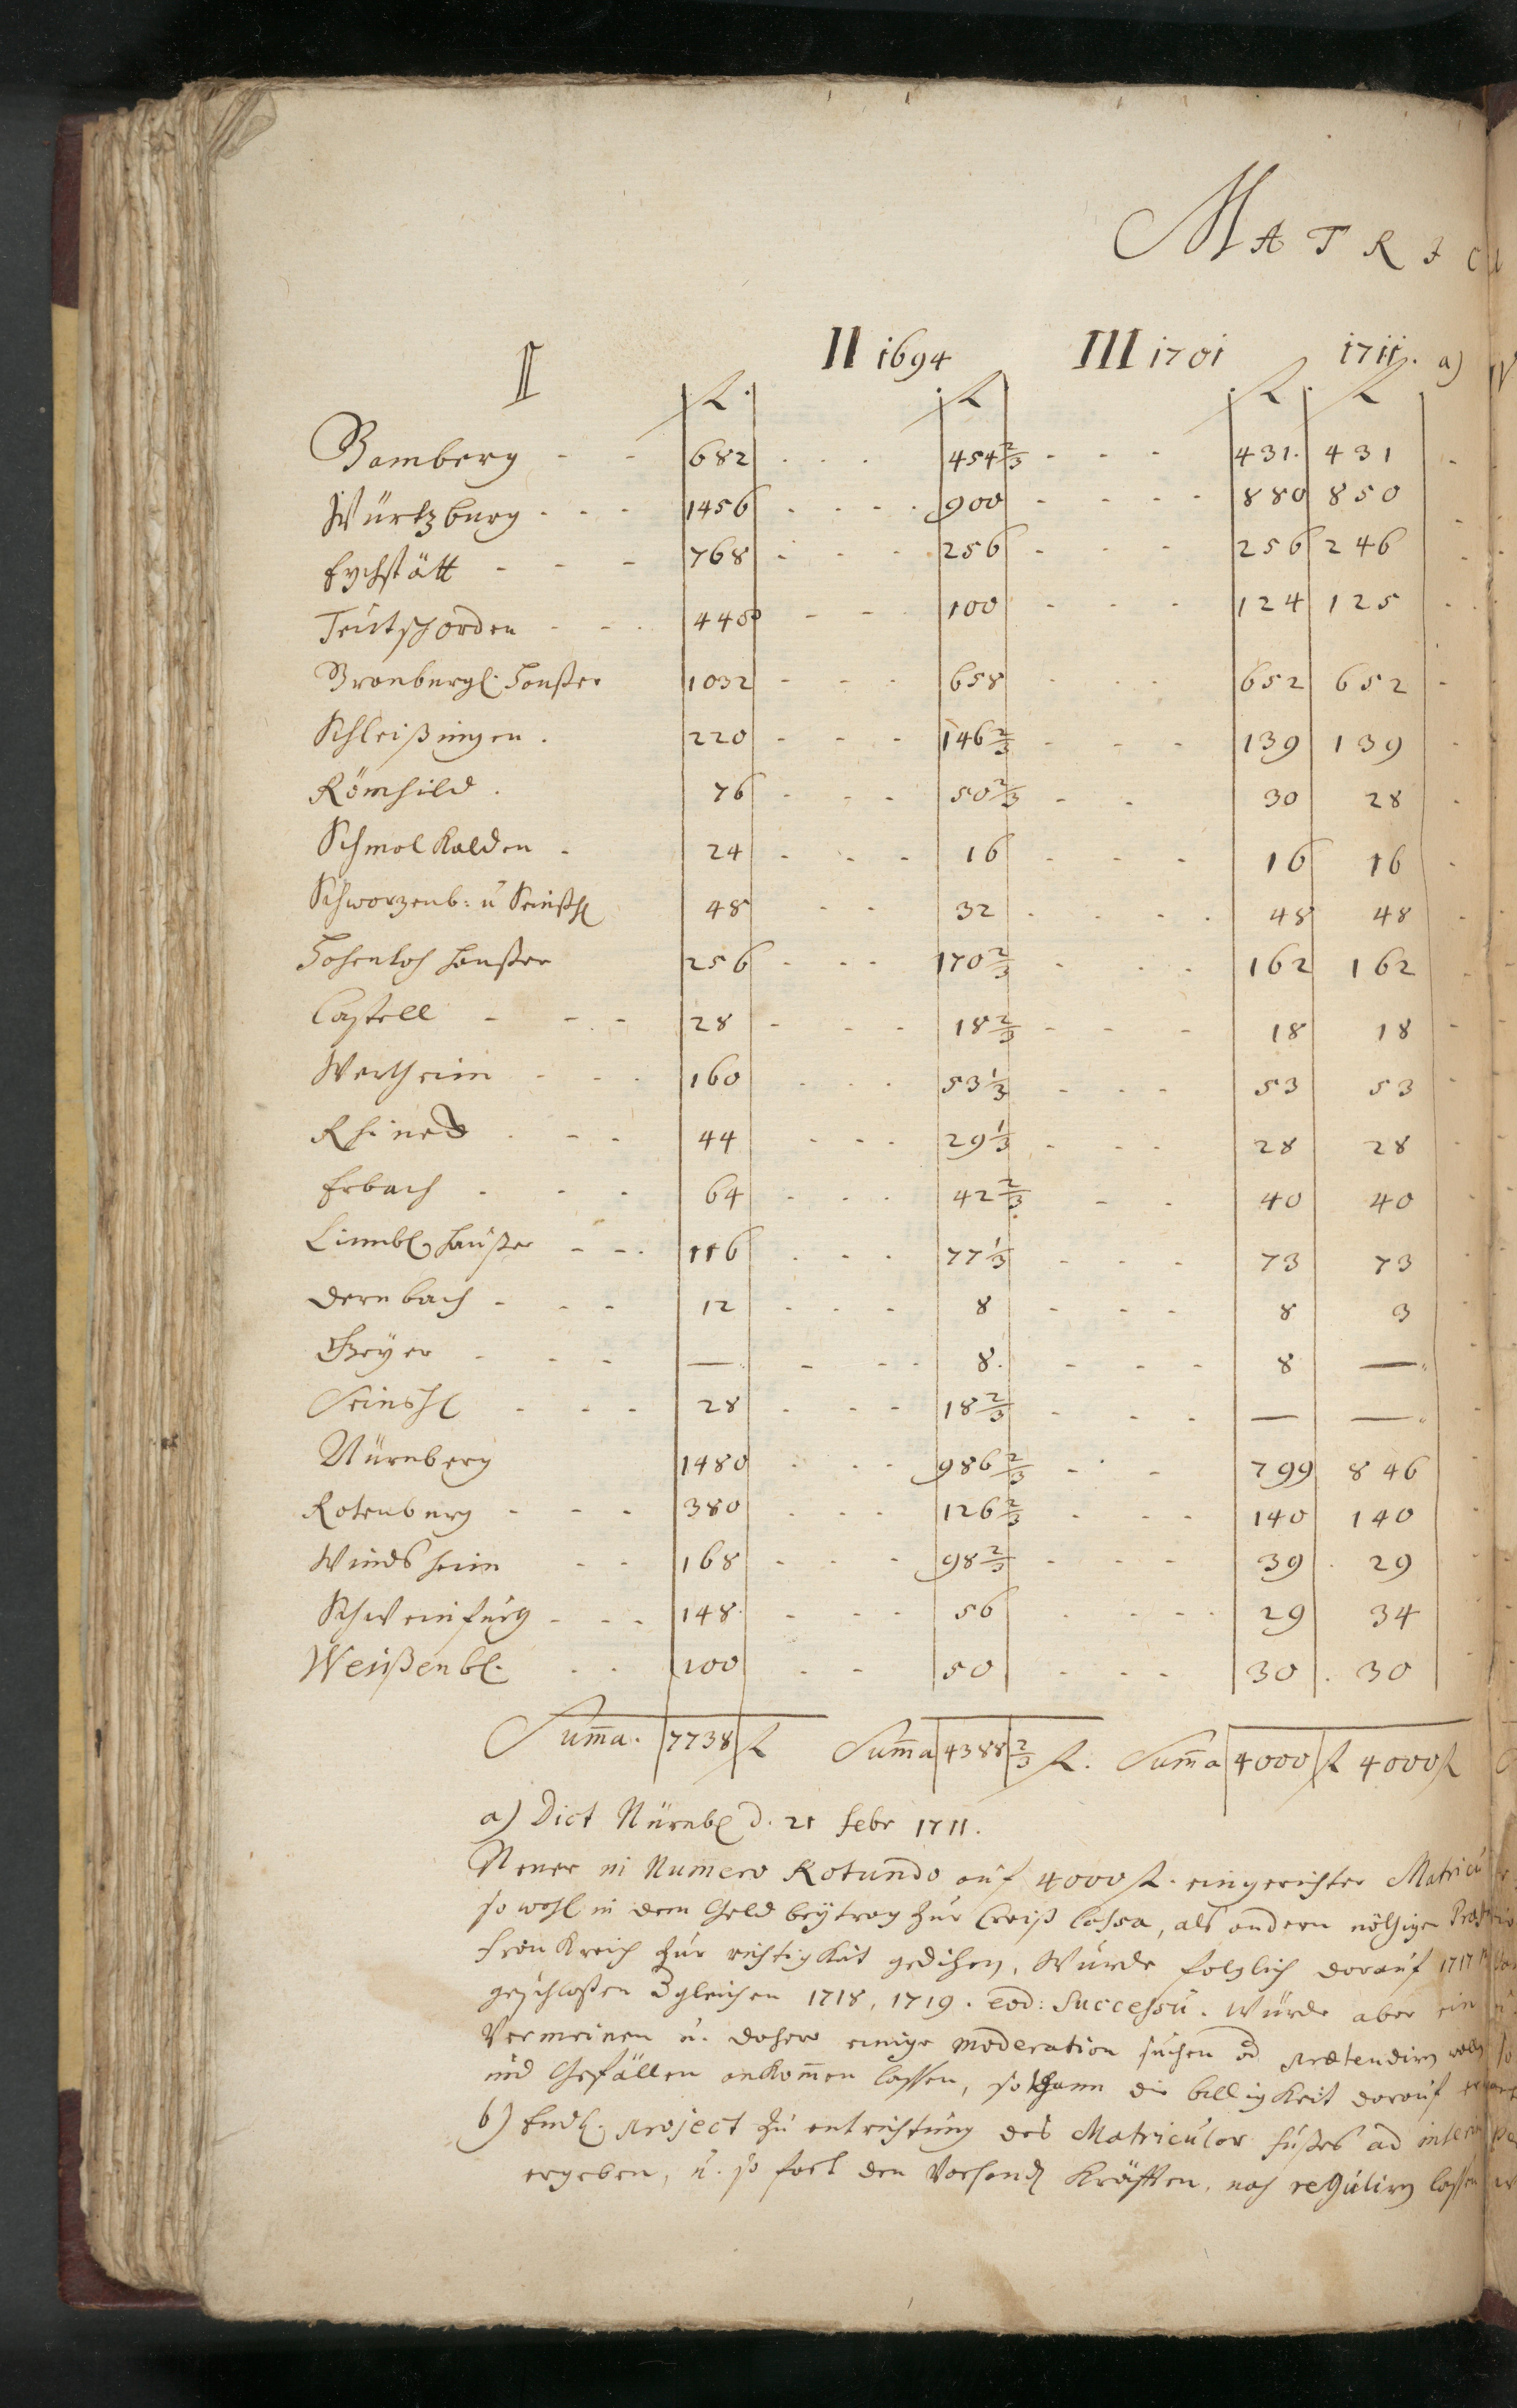 MATRICU
I II 1694 III 1701 1711. a) IV
fl. fl fl. fl
Bamberg - - 682 . . . 454 2/3 - - - 431. 431
Würtzburg - - - 1456 - - - . 900 - - - - 880 850
Eychstätt - - - 768 - - - 256 - - - 256 246
Teutschorden - - . 100 - - - 124 125
Branburgl. Hauser 1032 - - - 658 - - - 652 652
Schleißingen . 220 - - - 146 2/3 - - - 139 139
Römhild . 76 - - - 50 2/3 - - 30 28
Schmalkalden - 24 - - - 16 - - - 16 16
Schwarzenb: u Seinßh 48 - - 32 . . . . 48 48
Hohenloh Haußer 256 - - - 170 2/3 - - - 162 162
Castell - - - 28 - - - 18 2/3 - - - 18 18
Wertheim - - - 160 - - - 53 1/3 - - - 53 53
Rhineck . - - 44 - - - 29 1/3 - - - 28 28
Erbach - - - 64 - - - 42 2/3 - - 40 40
Limbl. Häußer - - . 116 - - - 77 1/3 - - - 73 73
Dernbach - - - 12 - - - 8 - - - 8 3
Geÿer - - - — - - - 8. - - - 8 —
Seinsh - - - 28 - - - 18 2/3 - - - — —
Nürnberg 1480 - - - 986 2/3 - - - 799 846
Rotenburg - - - 380 - - - 126 2/3 - - - 140 140
Windsheim - - 168 - - - 98 2/3 - - - 39 . 29
Schweinfurg - - - 148 - - - 56 - - - - 29 34
Weißenb. . . 100 - - 50 - - - 30 . 30
Suma. 7738 fl Suma 4388 2/3 fl. Suma 4000 fl 4000 fl
a) Dict Nürnb d. 21 Febr 1711.
Neuer in Numero Rotundo auf 4000 fl. eingerichter Matricu
so wohl in dem Geld beÿtrag zur Creiß Cassa, als andern nöthigen Præst
Franckreich zur richtigkeit gedihen, Wurde folglich darauf 1717
geschloßen dgleichen 1718, 1719. eod: Successu. Würde aber ein
Vermeinen u. dahero einige moderation suchen od prætendirn
und Gefällen ankomen lassen, so dann die billigkeit darauf
b) Endl. project zu entrichtung des Matricular fußes ad interim
ergeben, u. so fort den Vorhand Kräfften, nach regulirn lassen